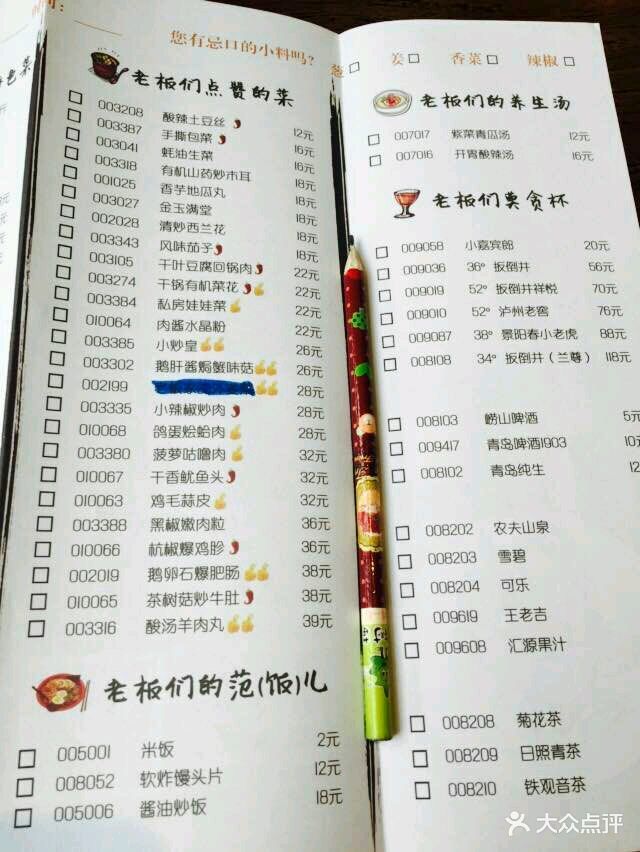 时间:
您有忌口的小料吗? 葱 姜 香菜 辣椒
色菜
老板们点赞的菜
003208 酸辣土豆丝 12元
003387 手撕包菜 16元
003041 蚝油生菜 16元
003318 有机山药炒木耳 18元
001025 香芋地瓜丸 18元
003027 金玉满堂 18元
002028 清炒西兰花 18元
003343 风味茄子 18元
003105 千叶豆腐回锅肉 22元
003274 干锅有机菜花 22元
003384 私房娃娃菜 22元
010064 肉酱水晶粉 22元
003385 小炒皇 26元
003302 鹅肝酱焗蟹味菇 26元
002199 28元
003335 小辣椒炒肉 28元
010068 鸽蛋烩蛤肉 28元
003380 菠萝咕噜肉 32元
010067 干香鱿鱼头 32元
010063 鸡毛蒜皮 32元
003388 黑椒嫩肉粒 36元
010066 杭椒爆鸡胗 36元
002019 鹅卵石爆肥肠 38元
010065 茶树菇炒牛肚 38元
003316 酸汤羊肉丸 39元
老板们的范(饭)儿
005001 米饭 2元
008052 软炸馒头片 12元
005006 酱油炒饭 18元
老板们的养生汤
007017 紫菜青瓜汤 12元
007016 开胃酸辣汤 16元
老板们莫贪杯
009058 小嘉宾郎 20元
009036 36° 扳倒井 56元
009019 52° 扳倒井祥悦 70元
009010 52° 泸州老窖 76元
009087 38° 景阳春小老虎 88元
008108 34° 扳倒井（兰尊） 118元
008103 崂山啤酒 5元
009417 青岛啤酒1903 10元
008102 青岛纯生 12元
008202 农夫山泉
008203 雪碧
008204 可乐
009619 王老吉
009608 汇源果汁
008208 菊花茶
008209 日照青茶
008210 铁观音茶
大众点评